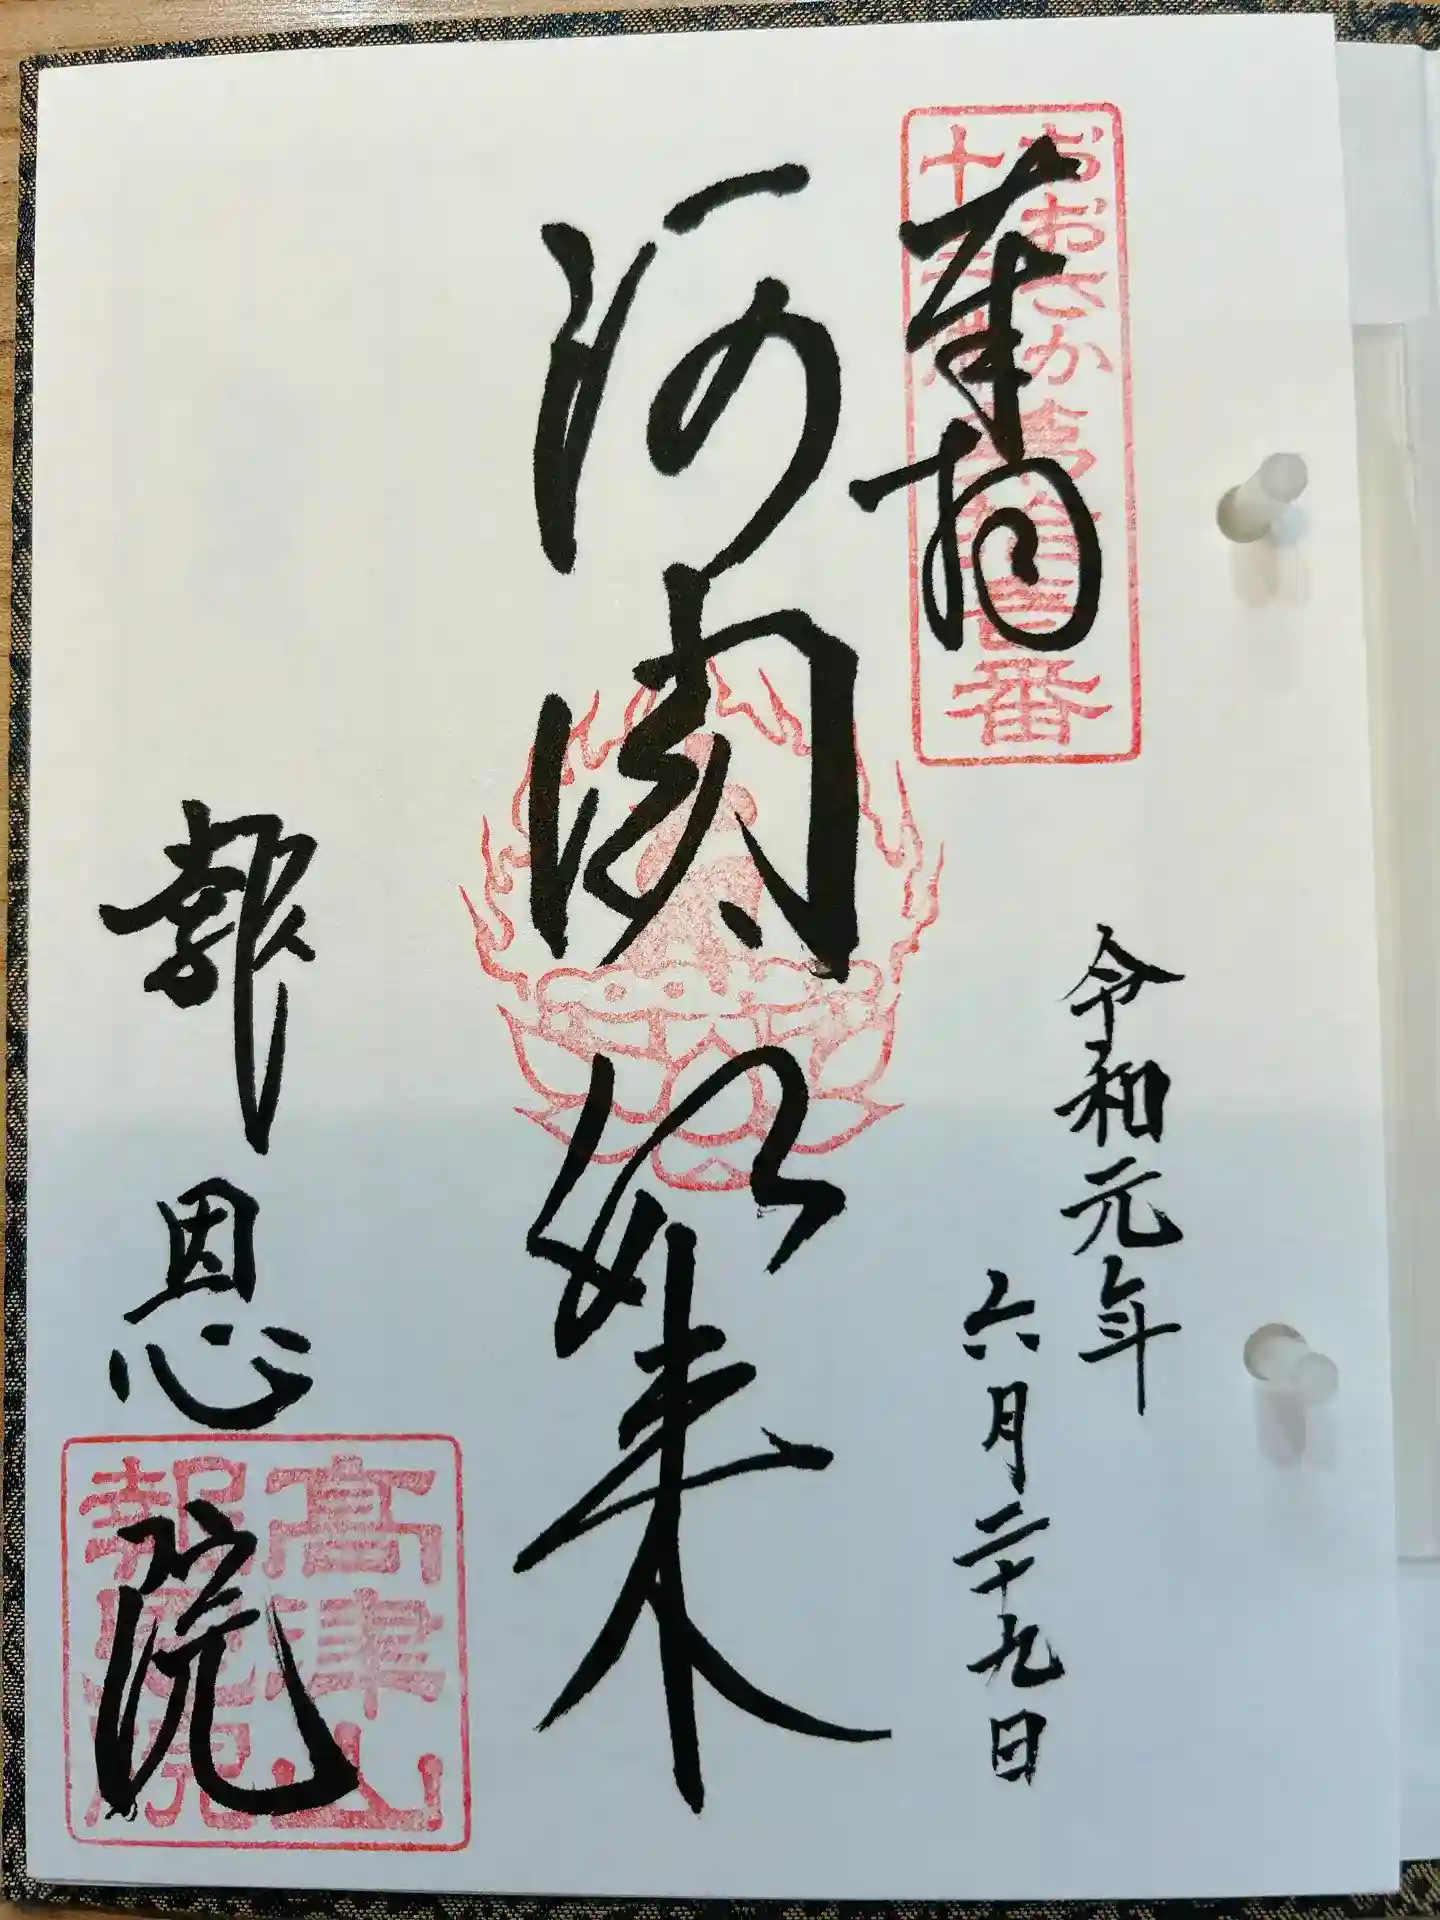 おおさか
十三佛
第拾壱番
奉拝
令和元年
六月二十九日
阿閦如来
報恩院
高津山
報恩院